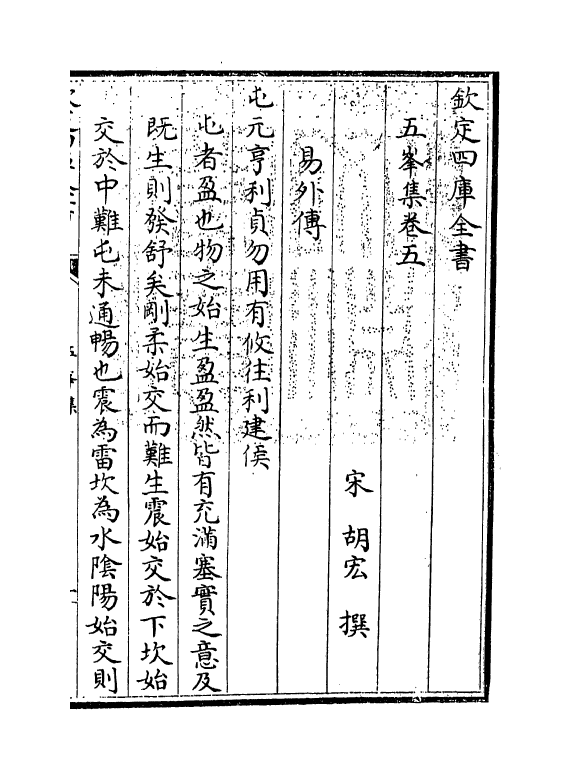 欽定四庫全書
五峯集卷五
宋 胡宏 撰
易外傳
屯元亨利貞勿用有攸往利建侯
屯者盈也物之始生盈盈然皆有充滿塞實之意及
既生則發舒矣剛柔始交而難生震始交於下坎始
交於中難屯未通暢也震為雷坎為水隂陽始交則